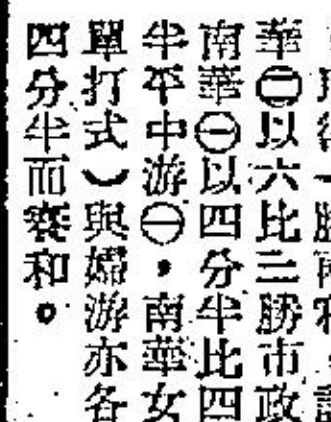 華㊁以六比三勝市政
南華㊀以四分半比四
半平中游㊀，南華女
單打式）與婦游亦各
四分半而賽和。